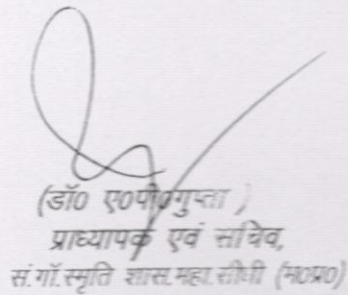 (डॉ0 ए0पी0गुप्ता )
प्राध्यापक एवं सचिव,
सं.गाॅं.स्मृति शास.महा.सीधी (म0प्र0)